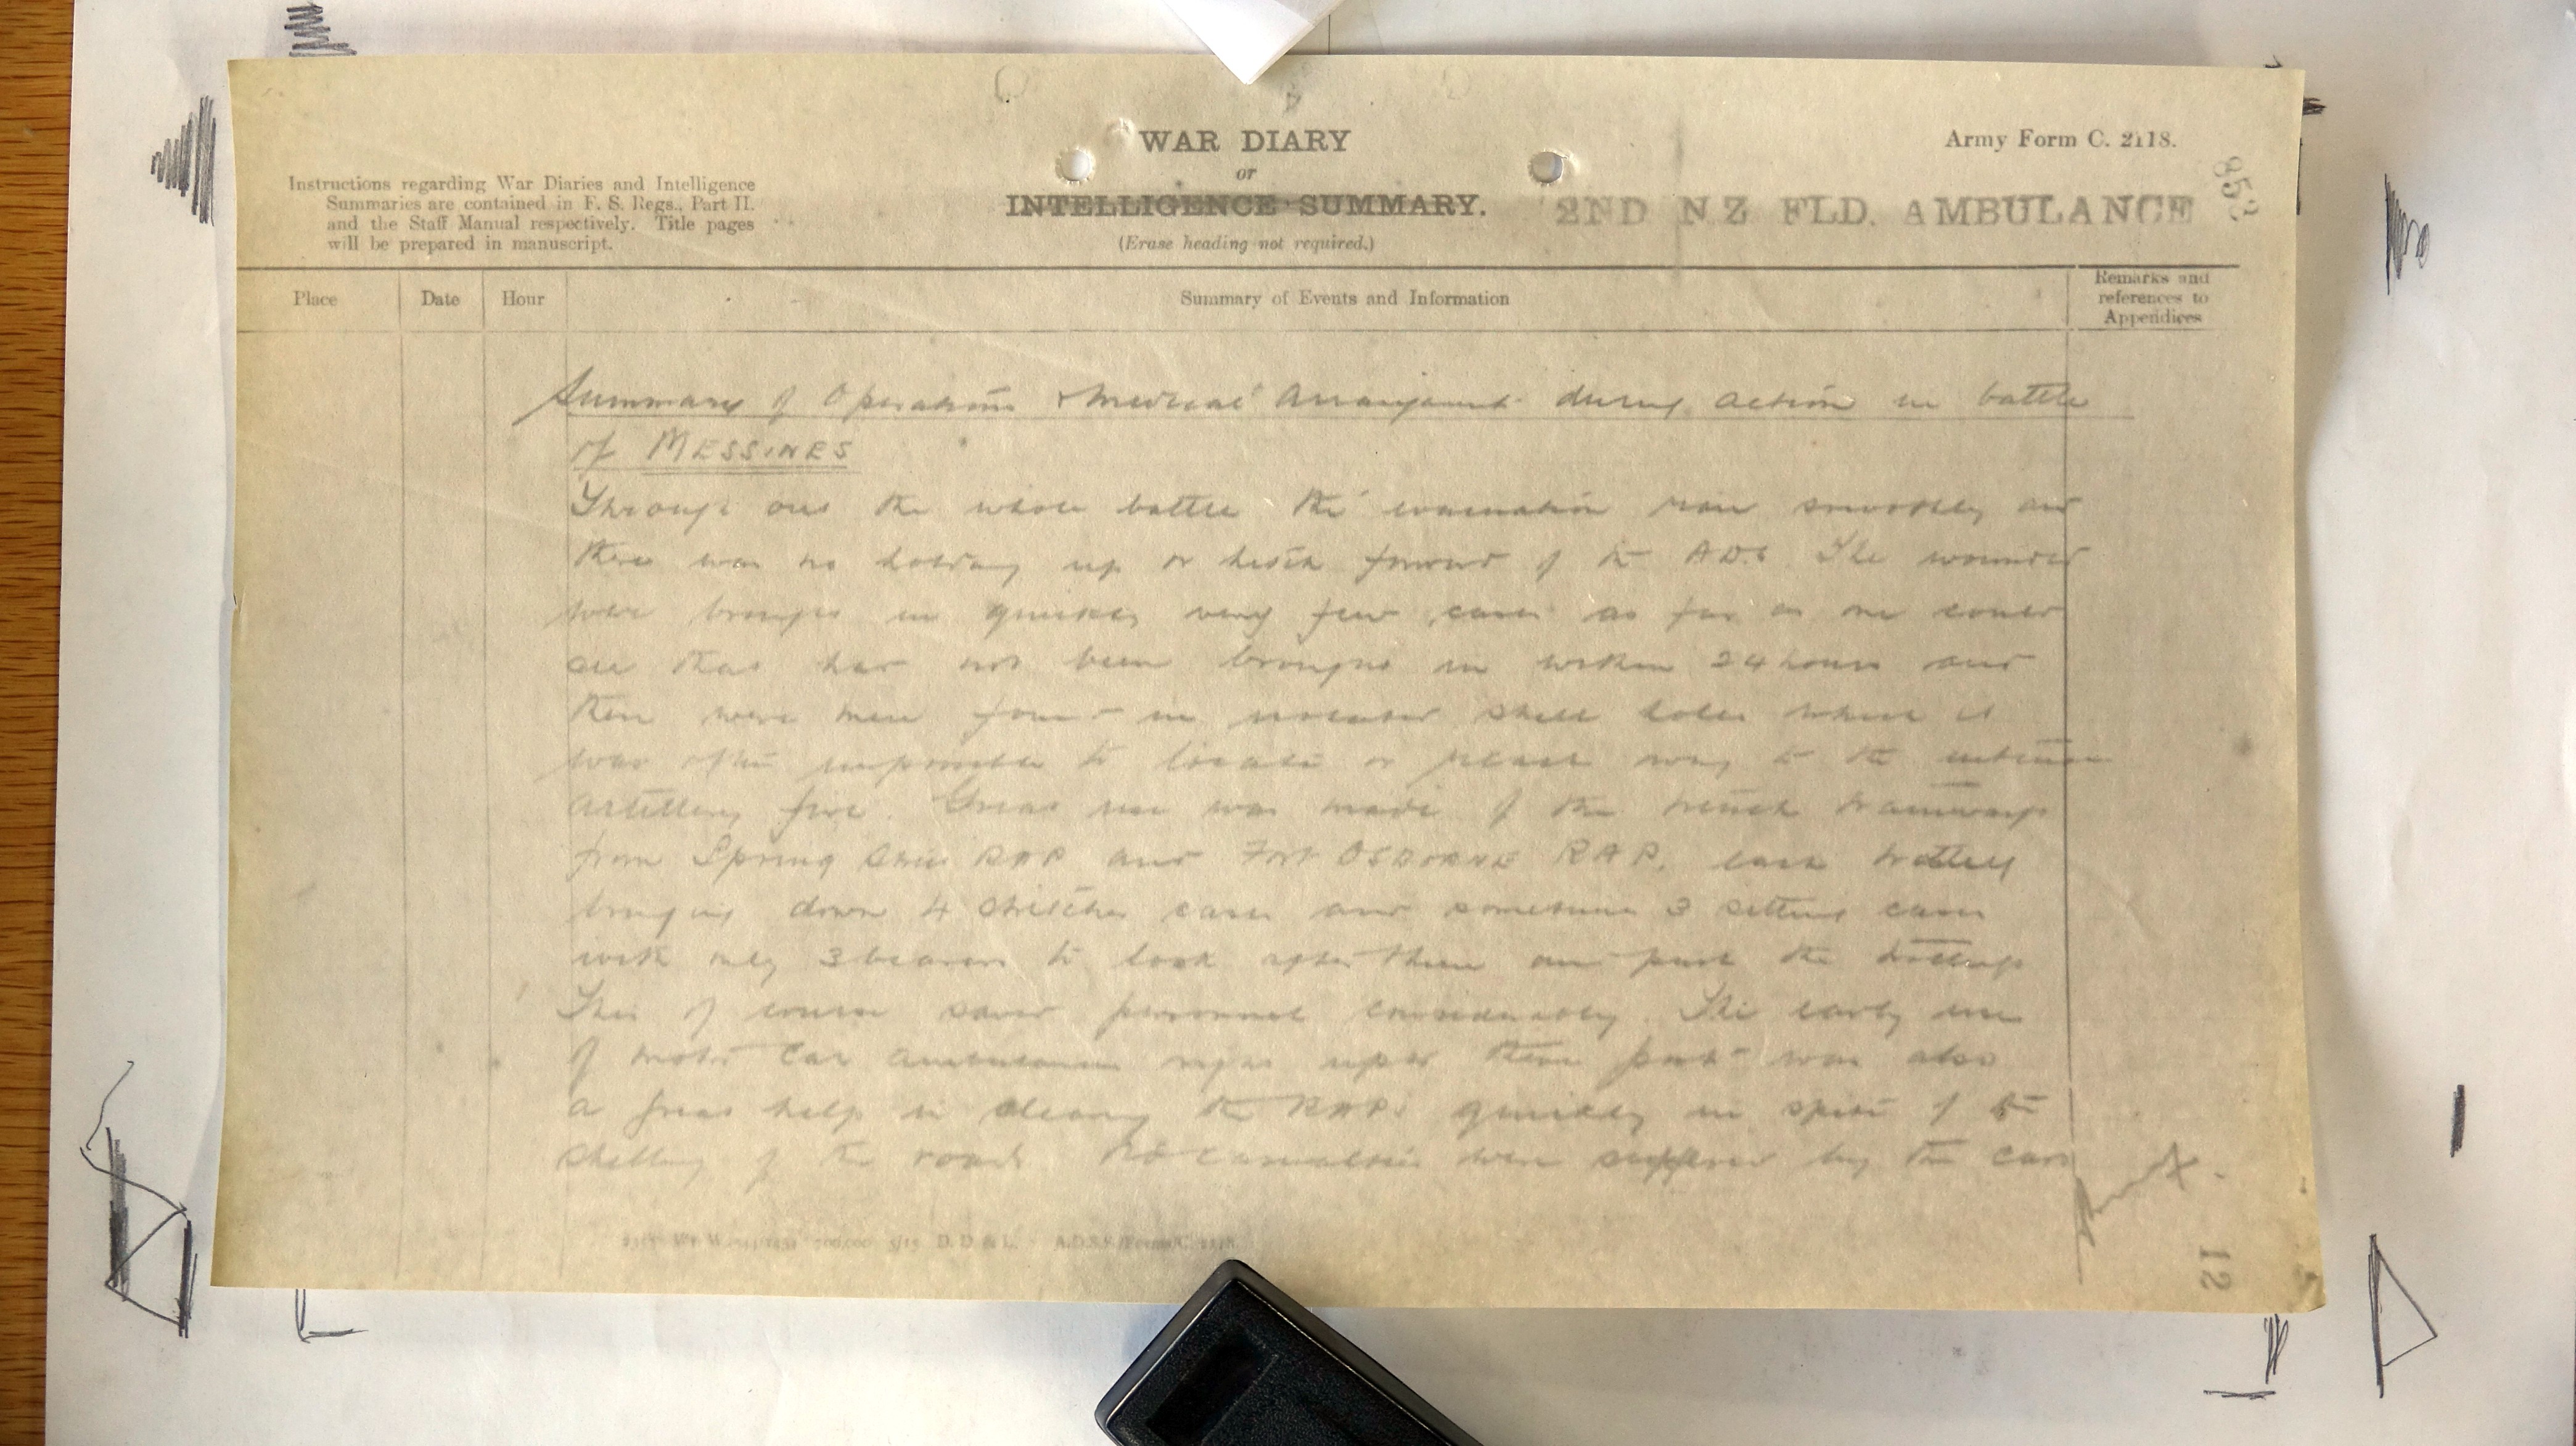 WAR DIARY
or
INTELLIGENCE SUMMARY.
(Erase heading not required.)
Army Form C. 2118.
2ND NZ FLD. AMBULANCE
853
Instructions regarding War Diaries and Intelligence
Summaries are contained in F. S. Regs., Part II.
and the Staff Manual respectively. Title pages
will be prepared in manuscript.
Place
Date
Hour
Summary of Events and Information
Remarks and
references to
Appendices
Summary of Operations & Medical Arrangements during action in battle
of MESSINES
Through out the whole battle the evacuation ran smoothly and
there was no holding up or hitch forward of the ADS. The wounded
were brought in quickly very few cases as far as one could
see that had not been brought in within 24 hours and
these were men found in isolated shell holes where it
was often impossible to locate or reach owing to the intense
artillery fire. Great use was made of the trench tramways
from Spring RAP and Fort OSBORNE RAP. each trolley
bringing down 4 stretcher cases and sometimes 3 sitting cases
with only 3 bearers to look after them and push the trolleys
This of course saved personnel considerably. The early use
of motor car ambulances right up to these posts was also
a great help in clearing the RAPs quickly in spite of the
shelling of the road. No casualties were suffered by the cars
12